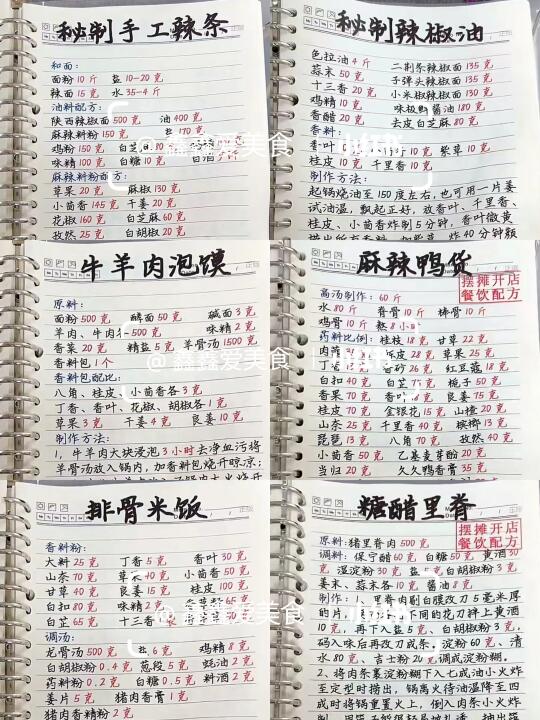 秘制手工辣条
和面:
面粉10斤 盐10-20克
辣面15克 水35-4斤
油料配方:
陕西辣椒面500克 油400克
麻辣料粉150克 盐170克
鸡粉150克 白芝麻80克
味精100克 白糖10克
麻辣料粉配方:
草果20克 麻椒130克
小茴香145克 干姜20克
花椒160克 白芝麻60克
孜然25克 白胡椒20克
秘制辣椒油
色拉油4斤 二荆条辣椒面135克
蒜末50克 子弹头辣椒面135克
十三香20克 小米椒辣椒面130克
鸡精10克 味极鲜酱油180克
香醋20克 去皮白芝麻80克
香料:
香叶 10克 紫草10克
桂皮10克 千里香10克
制作方法:
起锅烧油至150度左右,也可用一片姜
试油温,飘起正好,放香叶、千里香、
桂皮、小茴香炸制5分钟,香叶微黄
炸40分钟颜
牛羊肉泡馍
原料:
面粉500克 酵面50克 碱面3克
羊肉、牛肉各500克 味精2克
香菜20克 精盐5克 羊骨汤1500克
香料包1个
香料包配比:
八角、桂皮、小茴香各3克
丁香、香叶、花椒、胡椒各1克
草果3克 干姜4克 良姜10克
制作方法:
1,牛羊肉大块浸泡3小时去净血污将
羊骨汤放入锅内,加香料包烧开晾凉;
麻辣鸭货
摆摊开店
餐饮配方
高汤制作:60斤
水80斤 脊骨10斤 棒骨10斤
鸡骨10斤 熬8小
药料比例:桂枝18克 甘草22克
28克 草果25克
26克 红豆蔻18克
白扣40克 白芷 克 栀子50克
香果70克 香叶 克 良姜75克
桂皮70克 金银花15克 山楂20克
山奈25克 千里香40克 槟榔13克
枇杷13克 八角70克 孜然40克
小茴香50克 乙基麦芽酚20克
当归20克 久久鸭香膏35克
排骨米饭
香料粉:
大料25克 丁香5克 香叶30克
山奈70克 草 40克 小茴香50克
甘草40克 良姜15克 桂皮100克
白扣80克 味精2 65克
白芷65克 十三香
调汤:
龙骨汤500克 盐6克 鸡精8克
白胡椒粉0.4克 葱段5克 蚝油2克
药料粉0.2克 白糖0.5克 料酒2克
姜片5克 猪肉香膏1克
猪肉香精粉2克
糖醋里脊
摆摊开店
餐饮配方
原料:猪里脊肉500克
调料:保宁醋60克 白糖50克 黄酒30
克 湿淀粉30克 盐 克 白胡椒粉3克
姜末、蒜末各10克 酱油8克
制作:1,里脊肉剔白膜改刀5毫米厚
的片, 不同的花刀拌上黄酒
10克,再下入盐5克、白胡椒粉3克,
码入味后再改刀成条,淀粉60克、清
水80克、吉士粉20克调成淀粉糊。
2、将肉条裹淀粉糊下入七成油小火炸
至定型时捞出,锅离火待油温降至四
成时将锅重置火上,倒入肉条小火炸
@鑫鑫爱美食
@鑫鑫爱美食
@鑫鑫爱美食